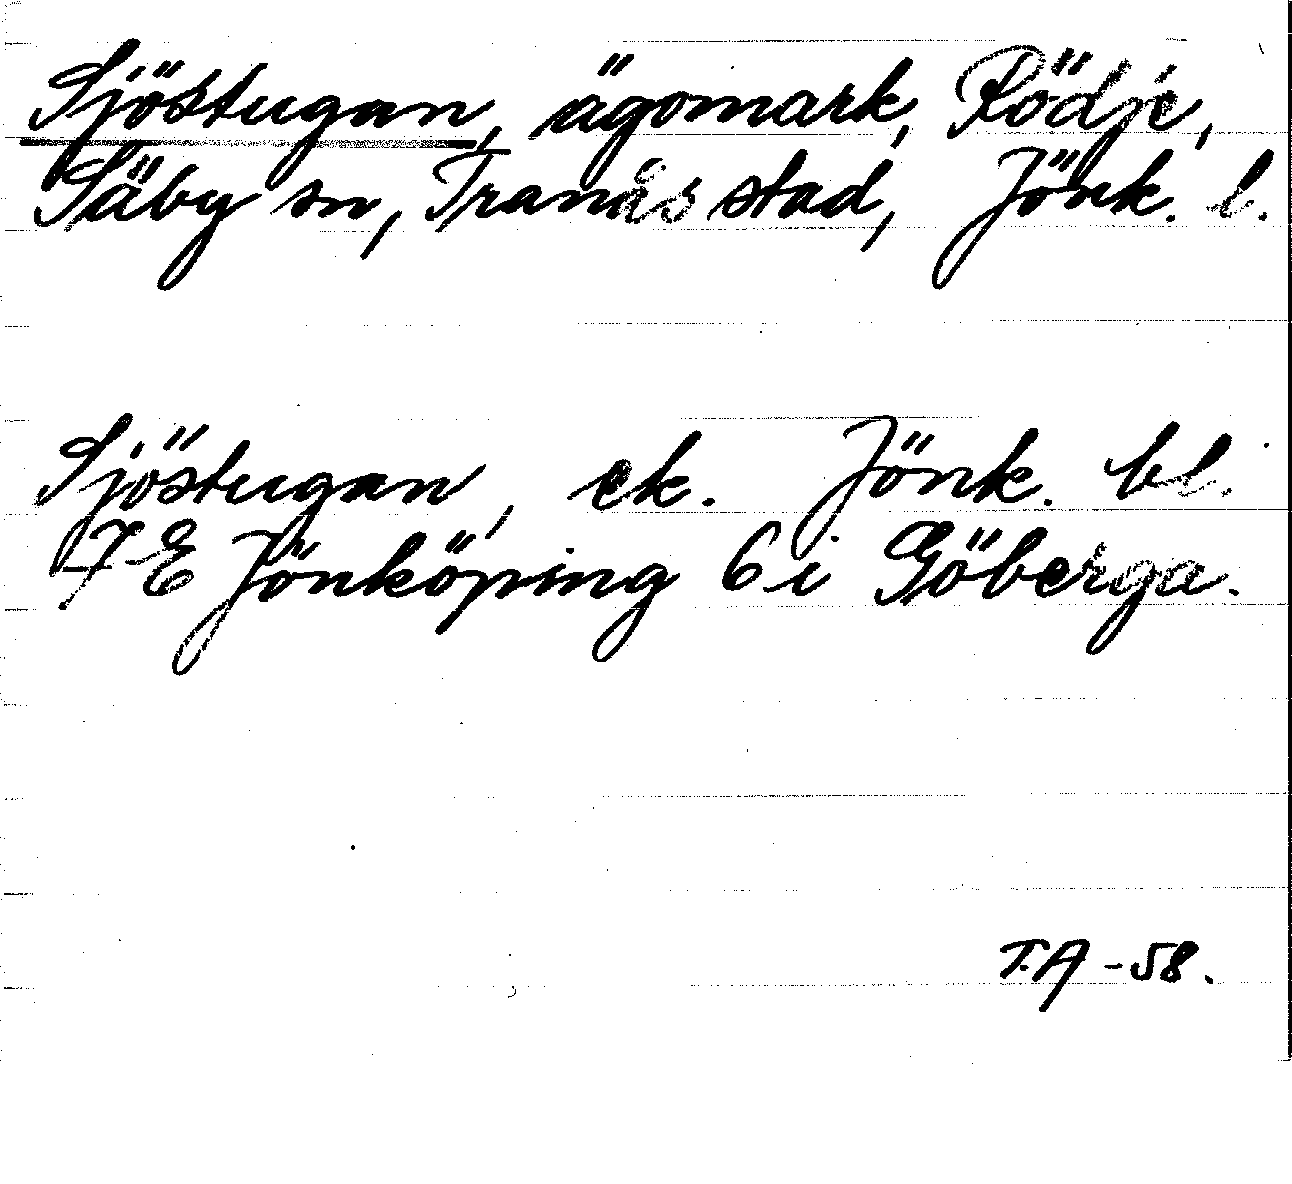 Sjöstugan, ägomark, Rödje,
Säby sn, Tranås stad, Jönk. l.
Sjöstugan, ek. Jönk. bl.
7E Jönköping 6i Göberga.
T.A -58.